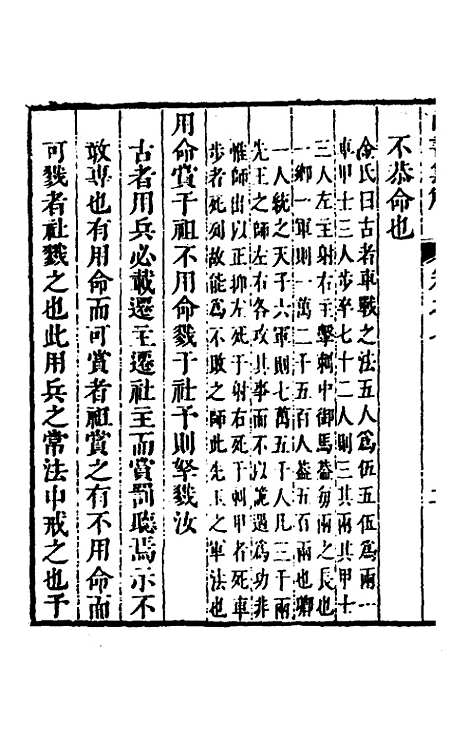 不恭命也
余氏曰古者車戰之法五人爲伍五伍爲兩一
車甲士三人步卒七十二人則三其兩其甲士
三人左主射右主擊刺中御馬蓋每兩之長也
一鄉一軍則一萬二千五百人蓋五百兩也卿
一人統之天子六軍則七萬五千人凡三千兩
先王之師左右各攻其事而不以詭遇爲功非
惟師出以正抑左死于射右死于刺甲者死車
步者死列故能爲不敗之師此先王之軍法也
用命賞于祖不用命戮于社予則孥戮汝
古者用兵必載遷主遷社主而賞罰聽焉示不
敢專也有用命而可賞者祖賞之有不用命而
可戮者社戮之也此用兵之常法申戒之也予